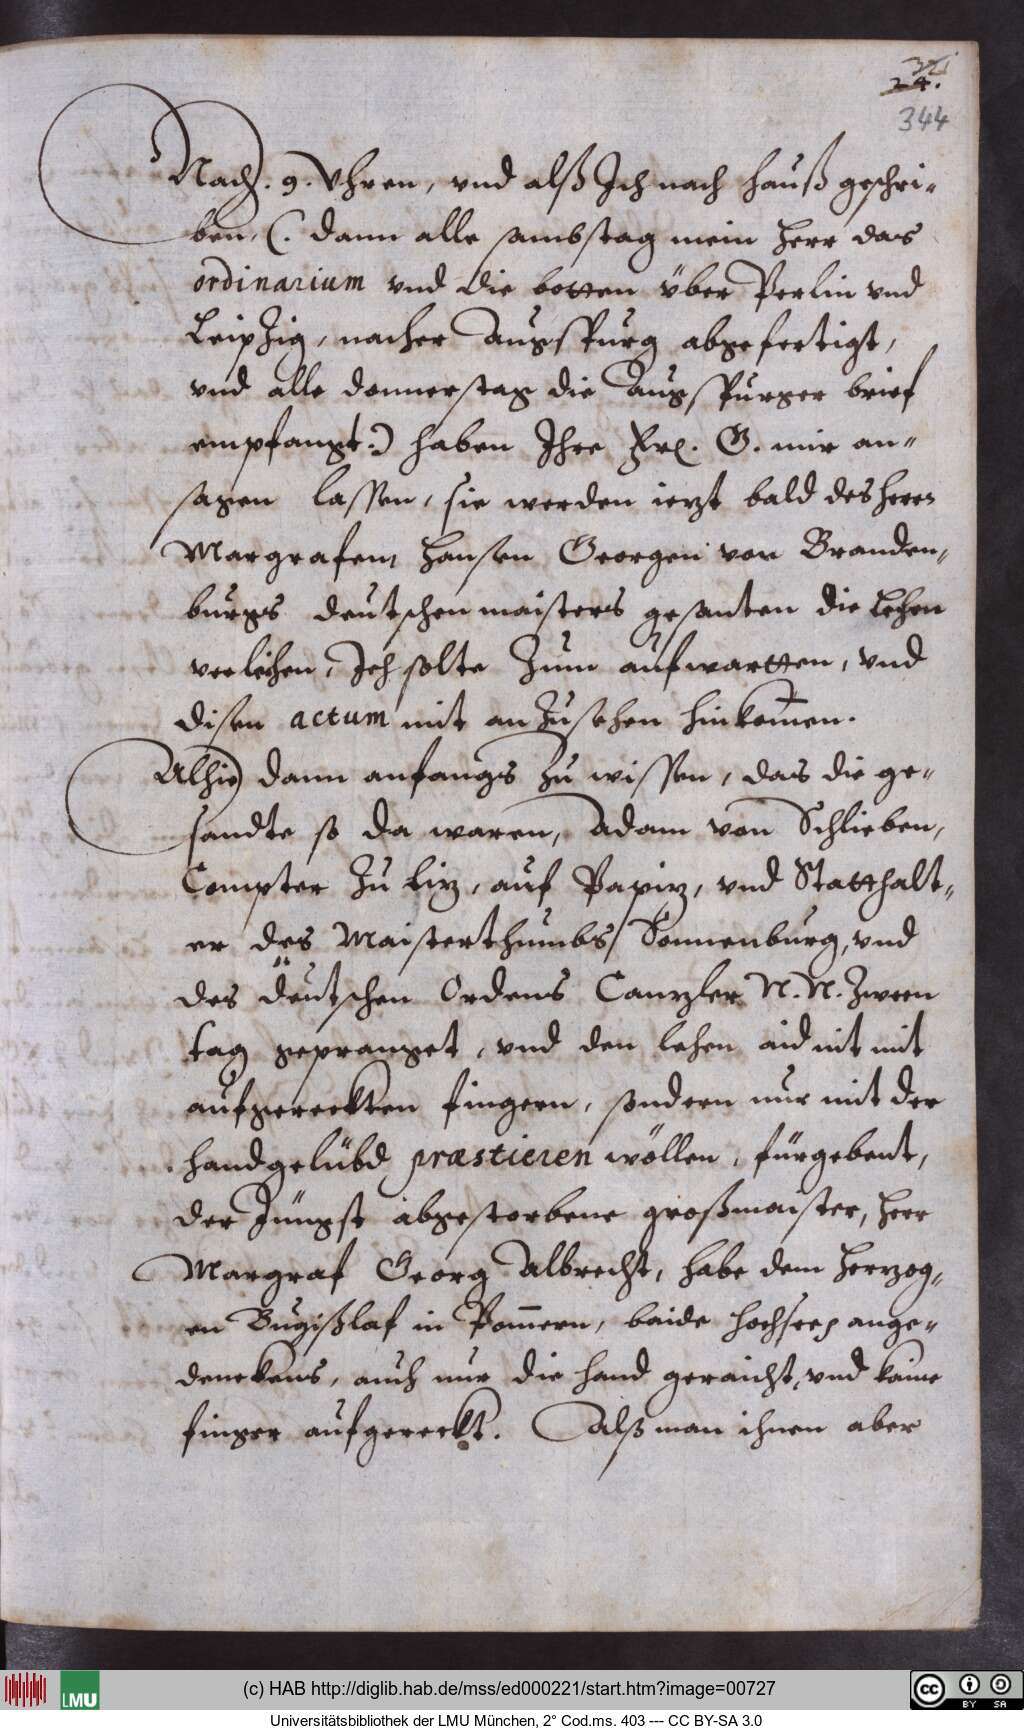 24.
344
Nach. 9. Vhren, vnd alß Ich nach hauß geschri-
ben, (. dann alle sambstag mein herr das
ordinarium vnd die botten über Perlin vnd
Leipzig, nacher Augspurg abgefertigt,
vnd alle donnerstag die Augspurger brief
empfangt:) haben Ihre Frl. G. mir an-
sagen lassen, sie werden iezt bald des herrn
Margrafen Hansen Georgen von Branden-
burgs deutschenmaisters gesanten die Lehen
verleihen, Ich solte zum aufwartten, vnd
disen actum mit anzusehen hinkom̄en.
Alhie dann anfangs zu wissen, das die ge-
sandte so da waren, Adam von Schlieben,
Compter zu Liz, auf Papiz, vnd Statthalt-
er des Maisterthumbs Sonnenburg, vnd
des deutschen Ordens Canzler N. N. zween
tag gepranget, vnd den lehen aid nit mit
aufgereckten fingern, sondern nur mit der
handgelübd præstieren wöllen, fürgebent,
der Jüngst abgestorbene großmaister, herr
Margraf Georg Albrecht, habe dem Herzog-
en Bugißlaf in Pom̄ern, baide hochseel ange-
denckens, auch nur die hand geraicht, vnd kaine
finger aufgereckt. Alß man ihnen aber
(c) HAB http://diglib.hab.de/mss/ed000221/start.htm?image=00727
LMU
CC BY SA
Universitätsbibliothek der LMU München, 2° Cod.ms. 403 --- CC BY-SA 3.0